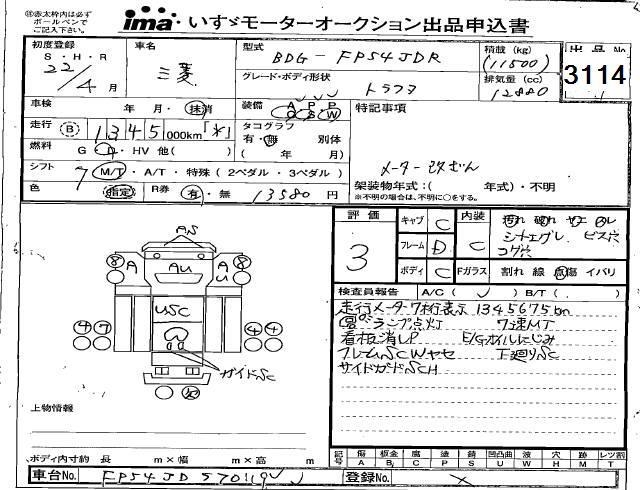 ※赤太枠内は必ず
ボールペンで
ご記入下さい。
ima・いすゞモーターオークション出品申込書
初度登録
S・H・R
22/4月
車名
三菱
型式
BDG-FP54JDR
積載 (kg)
(11500)
出品No
3114
グレード・ボディ形状
トラクタ
排気量 (cc)
12880
車検 年・月・抹消
装備 A P P
S W
特記事項
走行 B 1345 000km「*」
タコグラフ
有・無 別体
( 年 月)
燃料 G・D・HV 他( )
メーター改ざん
シフト 7 M/T・A/T・特殊(2ペダル・3ペダル)
架装物年式:( 年式)・不明
※不明の場合は、不明に○をする。
色 指定 R券 有・無 13580円
評価
3
キャブ C
フレーム D
ボディ C
内装
C
汚れ 破れ ヤケ スレ
シートエグレ ビス穴
コゲ穴
Fガラス 割れ 線 点傷 イバリ
検査員報告 A/C( ) B/T( . )
走行メーター7桁表示 1345675km
ランプ点灯 7速MT
看板消しP E/Gオイルにじみ
フレームSCWヤセ 下廻りSC
サイドガードSCH
AS
8 A AU A U 8
USC
4 7 4 4
ガイドSC
上物情報
ボディ内寸約 長 m×幅 m×高 m
記号 傷 A 板金 B 腐 C 塗 P 錆 S 凹凸曲 U 波 W 穴 H 跡 M レツ割 T
車台No. FP54JD 570119
登録No. ×